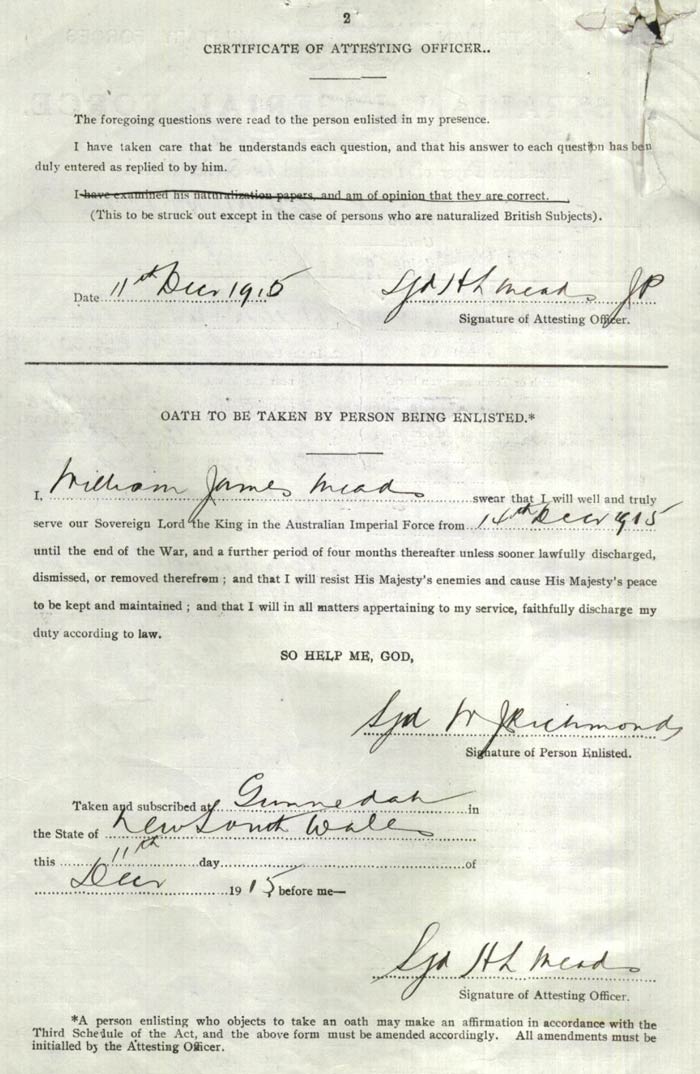 2
CERTIFICATE OF ATTESTING OFFICER..
The foregoing questions were read to the person enlisted in my presence.
I have taken care that he understands each question, and that his answer to each question has been
duly entered as replied to by him.
I have examined his naturalization papers, and am of opinion that they are correct.
(This to be struck out except in the case of persons who are naturalized British Subjects).
Date 11th Decr 1915 Sgd H L Meads JP
Signature of Attesting Officer.
OATH TO BE TAKEN BY PERSON BEING ENLISTED.*
I, William James Meads swear that I will well and truly
serve our Sovereign Lord the King in the Australian Imperial Force from 14th Decr 1915
until the end of the War, and a further period of four months thereafter unless sooner lawfully discharged,
dismissed, or removed therefrom ; and that I will resist His Majesty's enemies and cause His Majesty's peace
to be kept and maintained ; and that I will in all matters appertaining to my service, faithfully discharge my
duty according to law.
SO HELP ME, GOD,
Sgd W J Richmonds
Signature of Person Enlisted.
Taken and subscribed at Gunnedah in
the State of New South Wales
this 11th day of
Decr 1915 before me—
Sgd H L Meads
Signature of Attesting Officer.
*A person enlisting who objects to take an oath may make an affirmation in accordance with the
Third Schedule of the Act, and the above form must be amended accordingly. All amendments must be
initialled by the Attesting Officer.